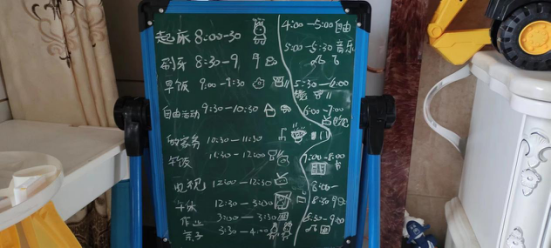 起床 8:00-30
刷牙 8:30-9
早饭 9:00-9:30
自由运动 9:30-10:30
10:30-11:30
午饭 11:30-12:00
电视 12:00-12:30
午休 12:30-3:00
3:00-3:30
亲子 3:30-4:00
4:00-5:00 自由
5:00-5:30 音乐
5:30-6:00
6:00-7:00
7:00-8:00
8:00-
8:30
8:30-9:00